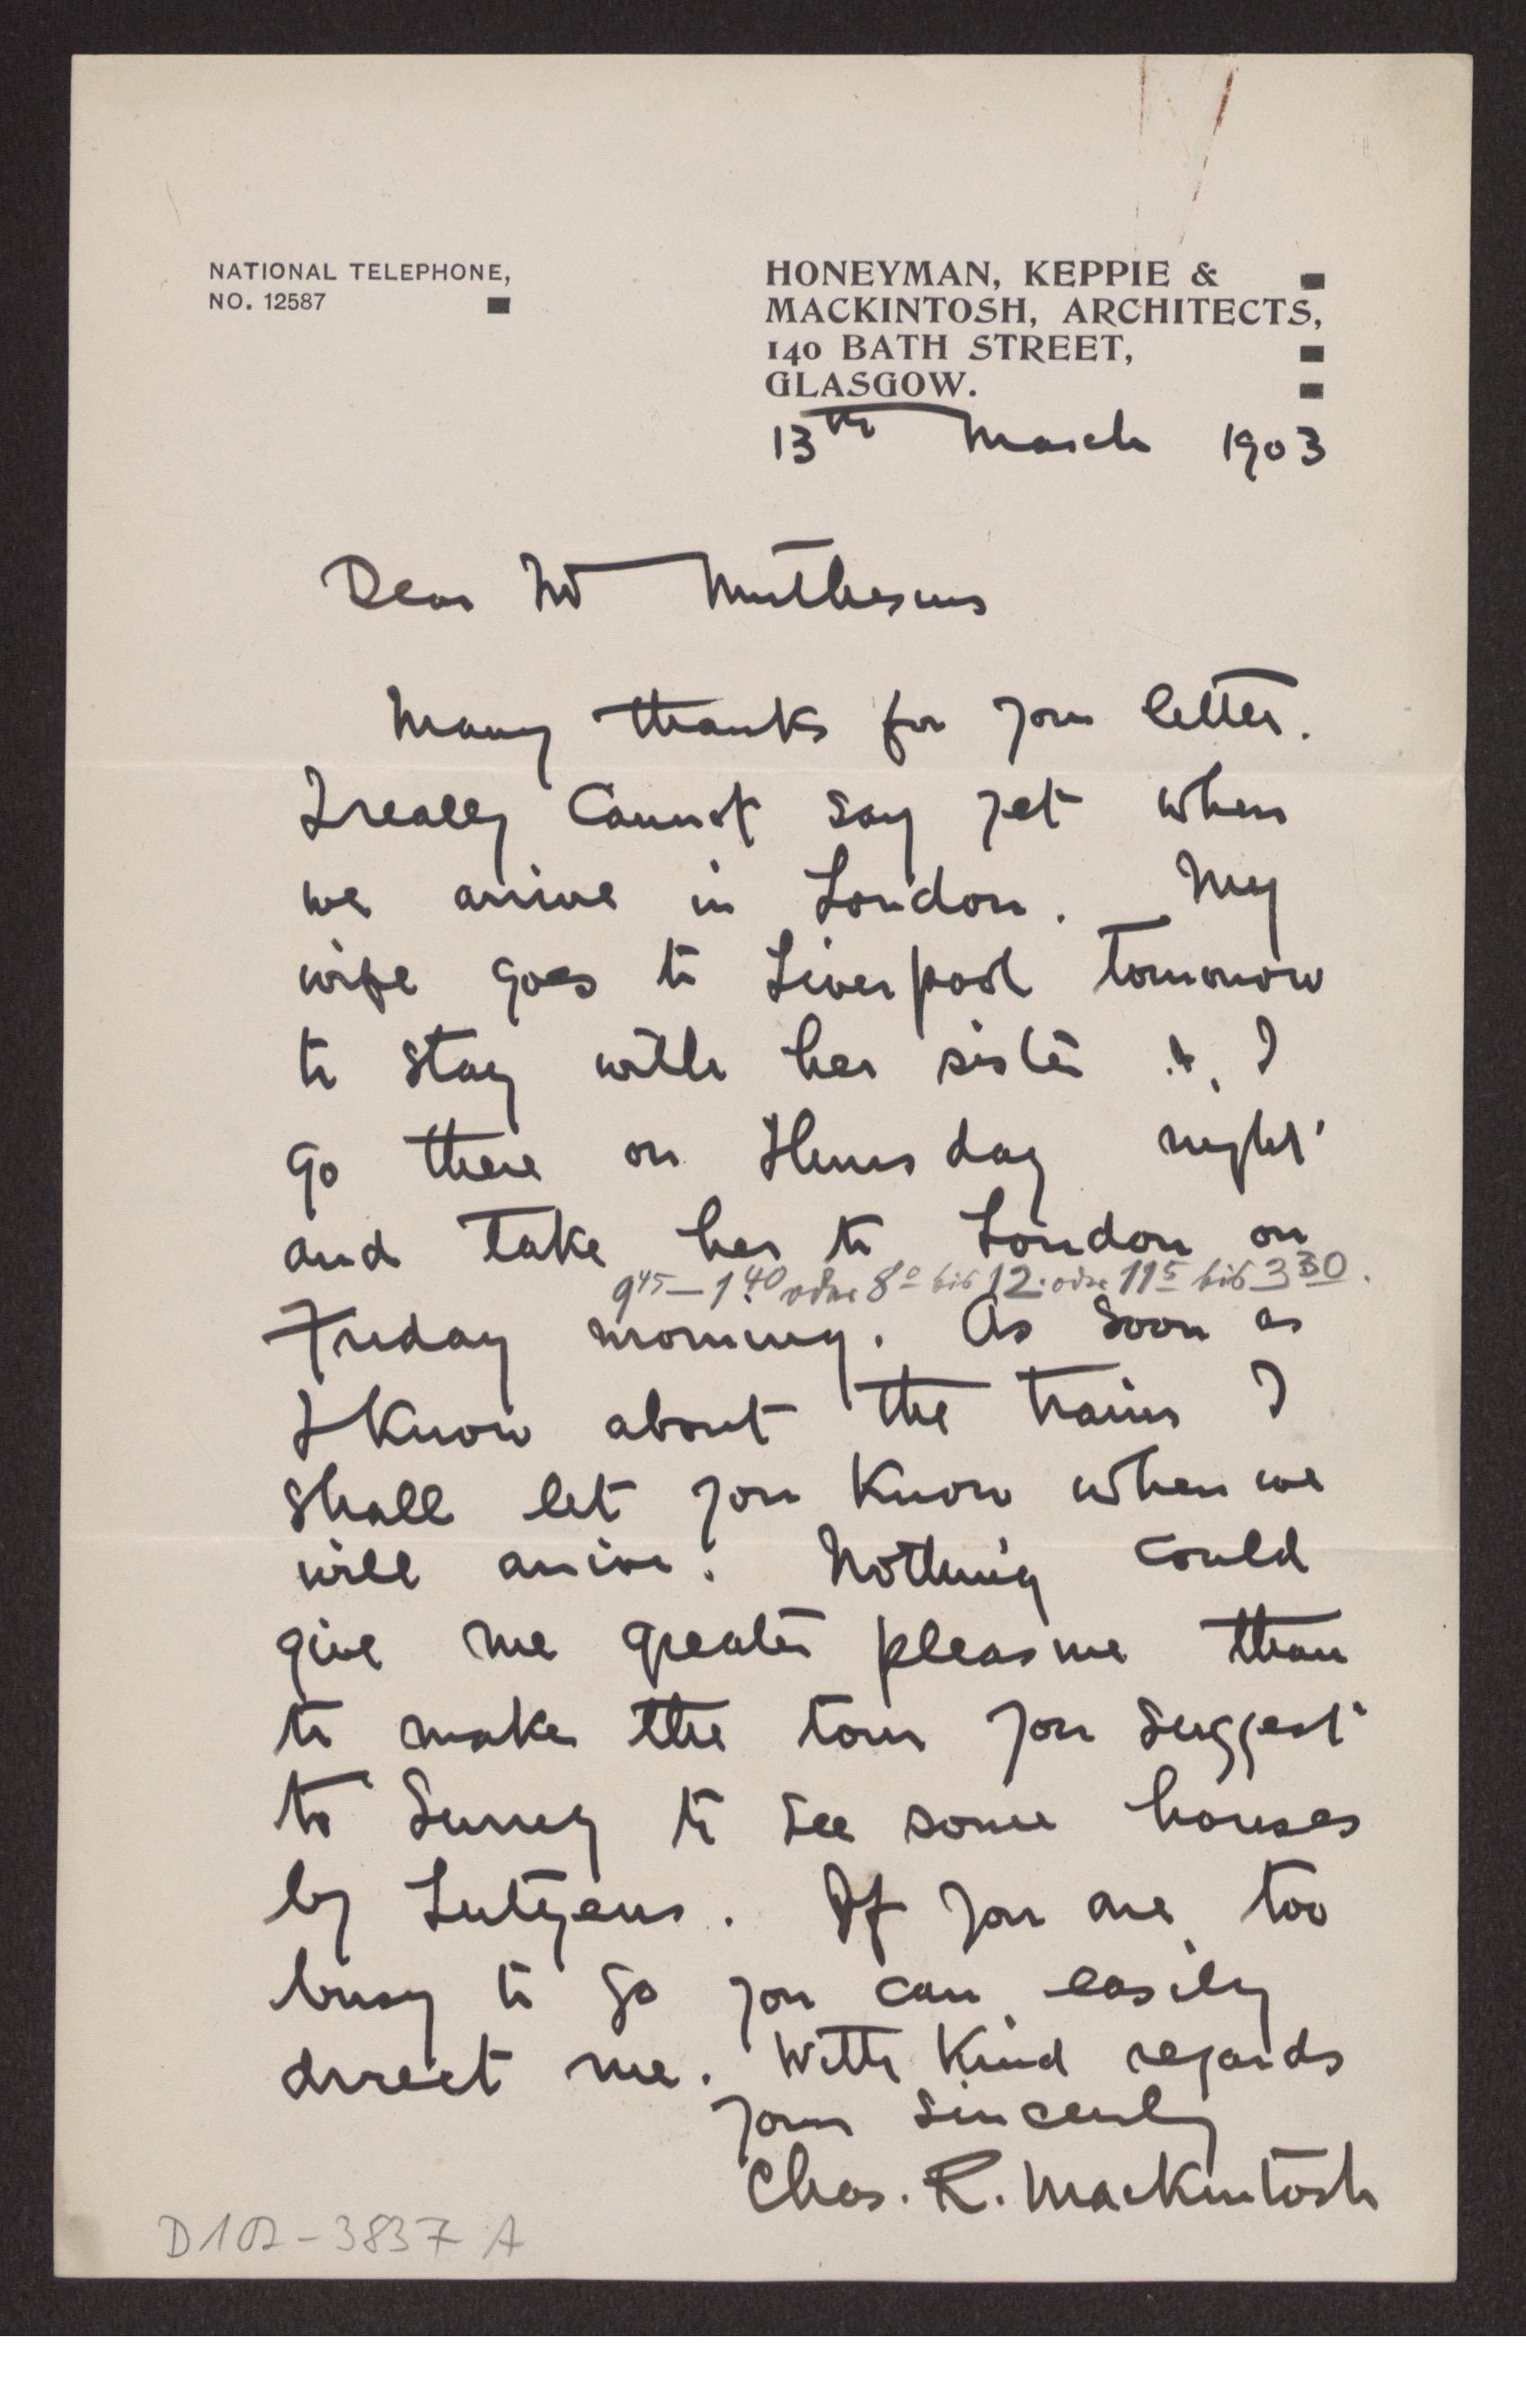 NATIONAL TELEPHONE,
NO. 12587
HONEYMAN, KEPPIE &
MACKINTOSH, ARCHITECTS,
140 BATH STREET,
GLASGOW.
13th March 1903
Dear Mr Muthesius
Many thanks for your letter.
I really cannot say yet when
we arrive in London. My
wife goes to Liverpool tomorrow
to stay with her sister & I
go there on Thursday night
and take her to London on
9 45 – 1 40 oder 8 0 bis 12. oder 11 5 bis 3 30.
Friday morning. As soon as
I know about the trains I
shall let you know when we
will arrive. Nothing could
give me greater pleasure than
to make the tour you suggest
to Surrey to see some houses
by Lutyens. If you are too
busy to go you can easily
direct me. With kind regards
Yours sincerely
Chas. R. Mackintosh
D 102 – 3837 A